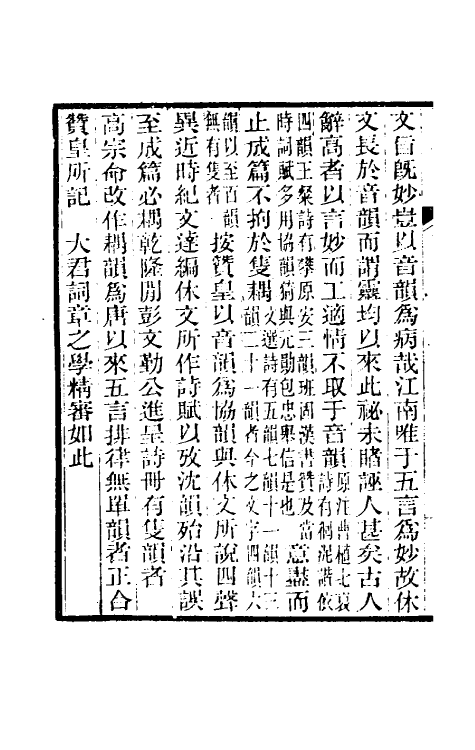 文旨既妙豈以音韻爲病哉江南唯于五言爲妙故休
文長於音韻而謂靈均以來此祕未睹誣人甚矣古人
辭高者以言妙而工適情不取于音韻原注曹植七哀詩有徊泥諧依
四韻王粲詩有攀原安三韻班固漢書贊及當時詞賦多用協韻猗與元勛包忠舉信是也意盡而
止成篇不拘於隻耦文選詩有五韻七韻十一韻十三韻二十一韻者今之文字四韻六
韻以至百韻無有隻者按贊皇以音韻爲協韻與休文所說四聲
異近時紀文達編休文所作詩賦以攷沈韻殆沿其誤
至成篇必耦乾隆閒彭文勤公進呈詩冊有隻韻者
高宗命改作耦韻爲唐以來五言排律無單韻者正合
贊皇所記　大君詞章之學精審如此